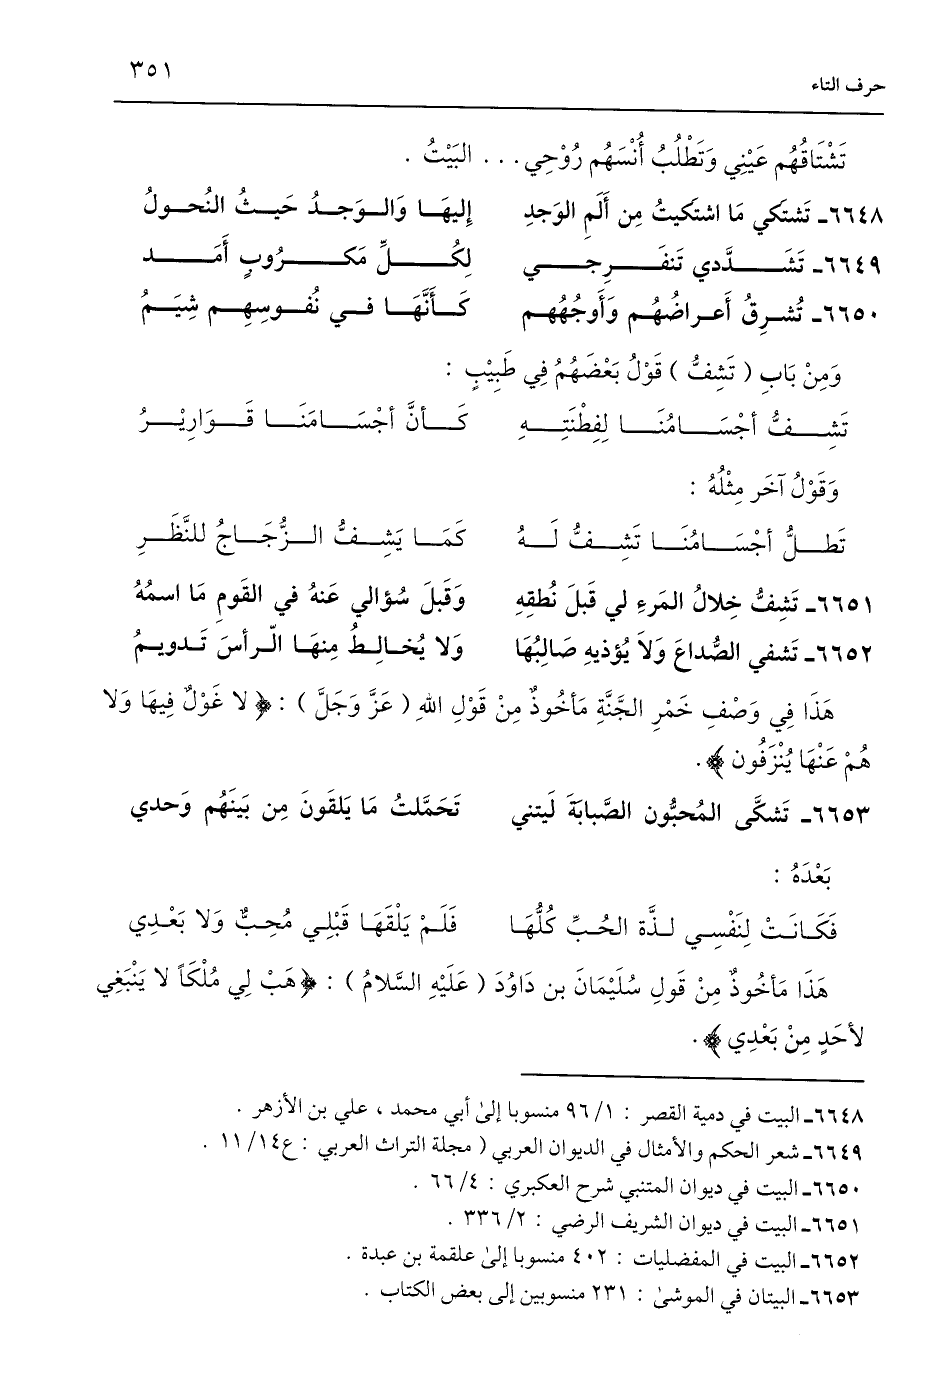 حرف التاء ٣٥١
تَشْتَاقُهُم عَيْنِي وَتَطْلُبُ أُنْسَهُم رُوْحِي . . . البَيْتُ .
٦٦٤٨ـ تَشتَكي مَا اشتكيتُ مِن أَلَمِ الوَجدِ إليهَا وَالوَجدُ حَيثُ النُحولُ
٦٦٤٩ـ تَشَدَّدي تَنفَرِجي لِكُلِّ مَكرُوبٍ أَمَد
٦٦٥٠ـ تُشرِقُ أَعراضُهُم وَأَوجُهُهُم كَأَنَّهَا في نُفوسِهِم شِيَمُ
وَمِنْ بَابِ ( تَشِفُّ ) قَوْلُ بَعْضَهُمُ فِي طَبِيْبٍ :
تَشِفُّ أجْسَامُنَا لِفِطْنَتِهِ كَأنَّ أجْسَامَنَا قَوَارِيْرُ
وَقَوْلُ آخَر مِثْلُهُ :
تَطلُّ أجْسَامُنَا تَشِفُّ لَهُ كَمَا يَشِفُّ الزُّجَاجُ للنَّظَرِ
٦٦٥١ـ تَشِفُّ خِلالُ المَرءِ لي قَبلَ نُطقِهِ وَقَبلَ سُؤالي عَنهُ في القَومِ مَا اسمُهُ
٦٦٥٢ـ تَشفي الصُّداعَ وَلاَ يُؤذيهِ صَالِبُهَا وَلا يُخالِطُ مِنهَا الرأسَ تَدويمُ
هَذَا فِي وَصْفِ خَمْرِ الجَنَّةِ مَأخُوذٌ مِنْ قَوْلِ اللهِ ( عَزَّ وَجَلَّ ) : ﴿ لا غَوْلٌ فِيهَا وَلا
هُمْ عَنْهَا يُنْزَفُون ﴾ .
٦٦٥٣ـ تَشكَّى المُحبُّون الصَّبابَةَ لَيتني تَحَمَّلتُ مَا يَلقَونَ مِن بَينَهُم وَحدي
بَعْدَهُ :
فَكَانَتْ لِنَفْسِي لذَّة الحُبِّ كُلُّهَا فَلَمْ يَلْقَهَا قَبْلِي مُحِبٌّ وَلا بَعْدِي
هَذَا مَأخُوذٌ مِنْ قَولِ سُلَيْمَانَ بن دَاوُدَ ( عَلَيْهِ السَّلامُ ) : ﴿ هَبْ لِي مُلْكَاً لا يَنْبَغِي
لأحَدٍ مِنْ بَعْدِي ﴾ .
٦٦٤٨ـ البيت في دمية القصر : ١/ ٩٦ منسوبا إلىٰ أبي محمد ، علي بن الأزهر .
٦٦٤٩ـ شعر الحكم والأمثال في الديوان العربي ( مجلة التراث العربي : ع١٤/ ١١ .
٦٦٥٠ـ البيت في ديوان المتنبي شرح العكبري : ٤/ ٦٦ .
٦٦٥١ـ البيت في ديوان الشريف الرضي : ٢/ ٣٣٦ .
٦٦٥٢ـ البيت في المفضليات : ٤٠٢ منسوبا إلىٰ علقمة بن عبدة .
٦٦٥٣ـ البيتان في الموشىٰ : ٢٣١ منسوبين إلى بعض الكتاب .